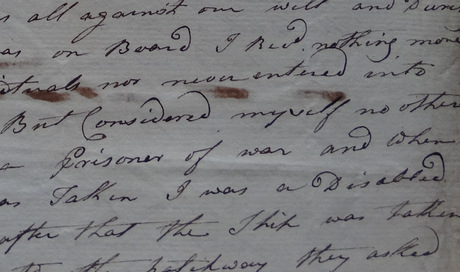 s all against our will and During
as on Board I Recd. nothing more
ictuals nor never entered into
But Considered myself no other
a Prisoner of war and when
as Taken I was a Disabled
after that the Ship was taken
to the hatchway they asked